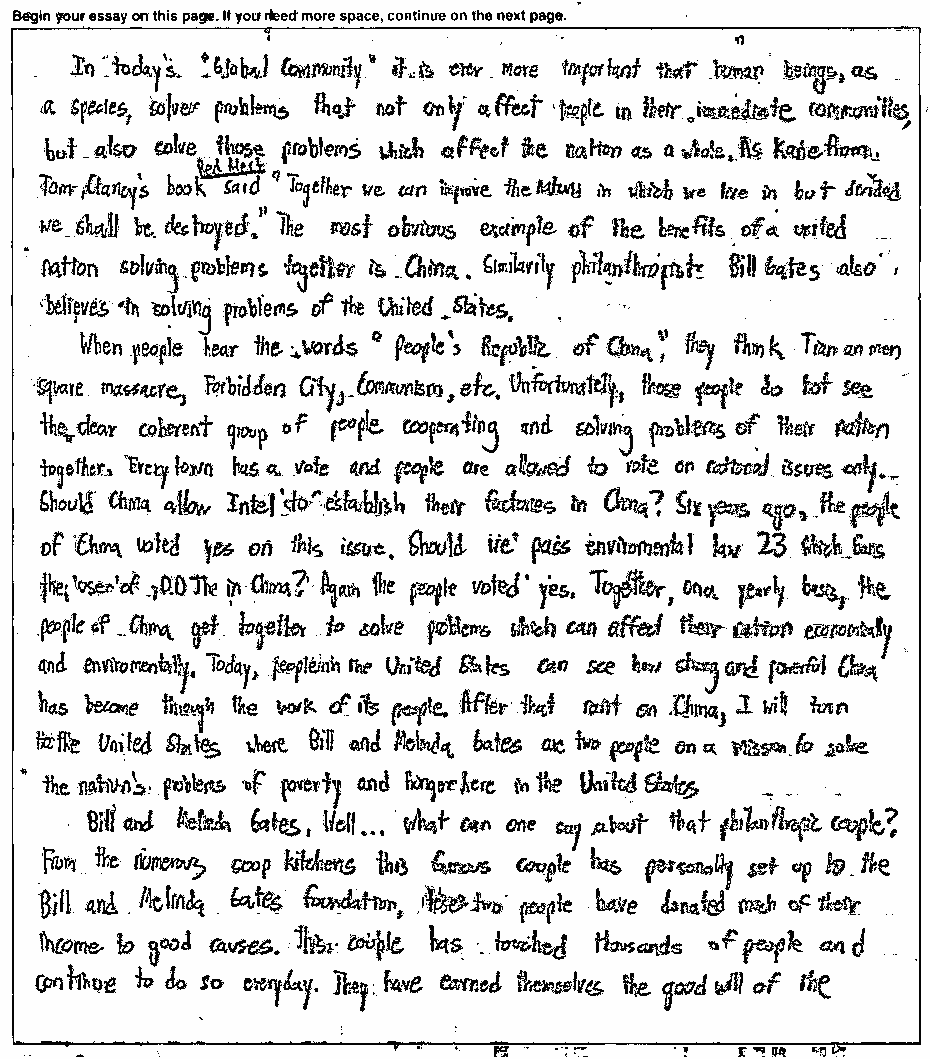 Begin your essay on this page. If you need more space, continue on the next page.
In today's "Global Community" it is ever more important that human beings, as
a species, solver problems that not only affect people in their immediate communities,
but also solve those problems which affect the nation as a whole. As Katie from
Red Heat
Tom Clancy's book said "Together we can improve the in which we live in but divided
we shall be destroyed." The most obvious example of the benefits of a united
nation solving problems together is China. Similarily philanthropist Bill Gates also
believes in solving problems of the United States.
When people hear the words "People's Republic of China", they think Tian an men
square massacre, Forbidden City, Communism, etc. Unfortunately, those people do not see
the clear coherent group of people cooperating and solving problems of their nation
together. Every town has a vote and people are allowed to vote on national issues only.
Should China allow Intel to establish their factories in China? Six years ago, the people
of China voted yes on this issue. Should we pass enviromental law 23 which bans
the use of in China? Again the people voted yes. Together, on a yearly basis, the
people of China get together to solve poblems which can affect their nation economially
and enviromentally. Today, people in the United States can see how strong and powerful China
has become through the work of its people. After that rant on China, I will turn
to the United States where Bill and Melinda Gates are two people on a mission to solve
the nation's problems of poverty and hunger here in the United States
Bill and Melinda Gates, Well... what can one say about that philanthropic couple?
From the numerous soop kitchens this famous couple has personally set up to the
Bill and Melinda Gates foundation, these two people have donated much of their
income to good causes. This couple has touched thousands of people and
continue to do so everyday. They have earned themselves the good will of the